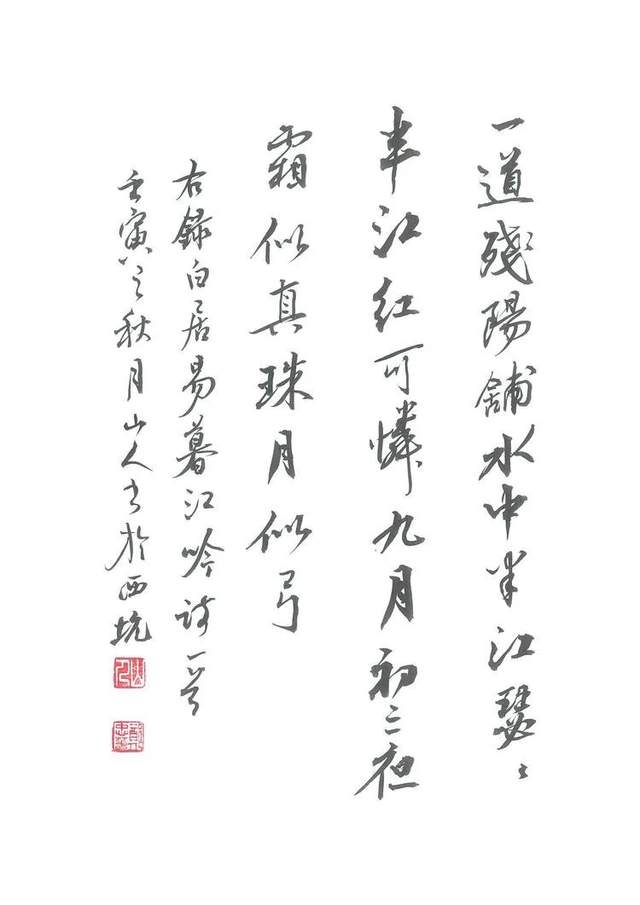 一道殘陽舖水中半江瑟〻
半江紅可憐九月初三夜
霜似真珠月似弓
右錄白居易暮江吟詩一首
壬寅之秋月山人书於西坑